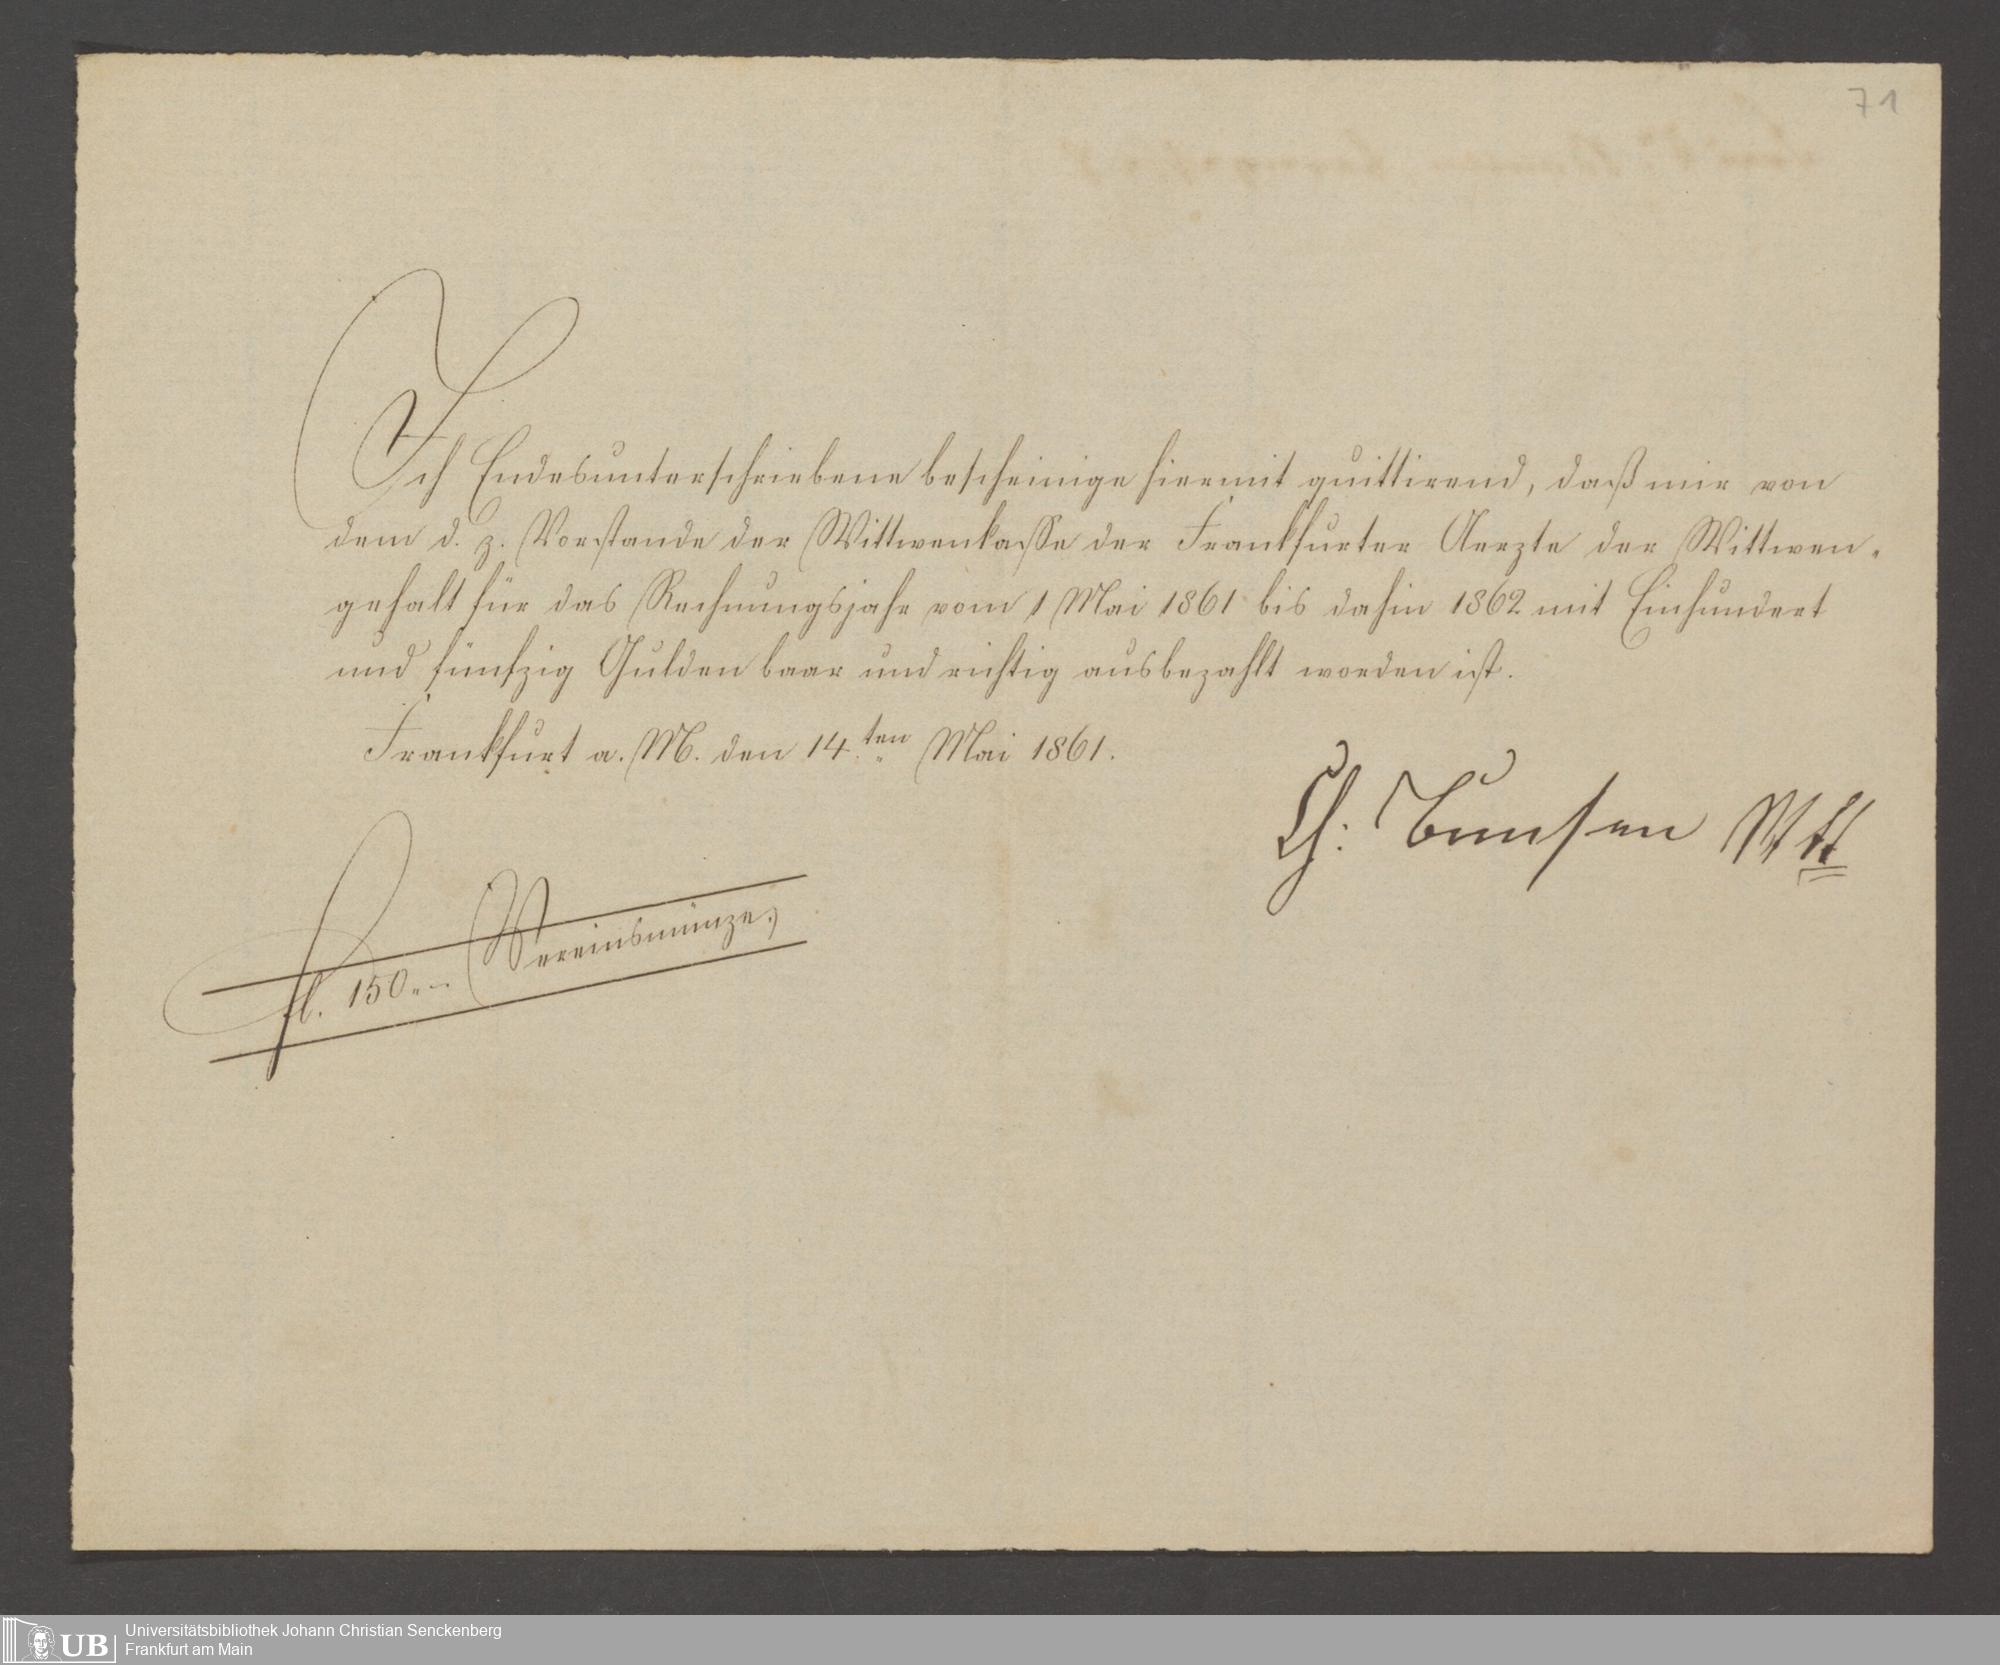 71
Ich Endesunterschriebene bescheinige hiermit quittirend, daß mir von
dem d. z. Vorstande der Wittwenkasse der Frankfurter Aerzte der Wittwen-
gehalt für das Rechnungsjahr vom 1 Mai 1861 bis dahin 1862 mit Einhundert
und fünfzig Gulden baar und richtig ausbezahlt worden ist.
Frankfurt a. M. den 14ten Mai 1861.
Ch: Bunsen Wtt
fl. 150.- Vereinsmünze.
UB
Universitätsbibliothek Johann Christian Senckenberg
Frankfurt am Main